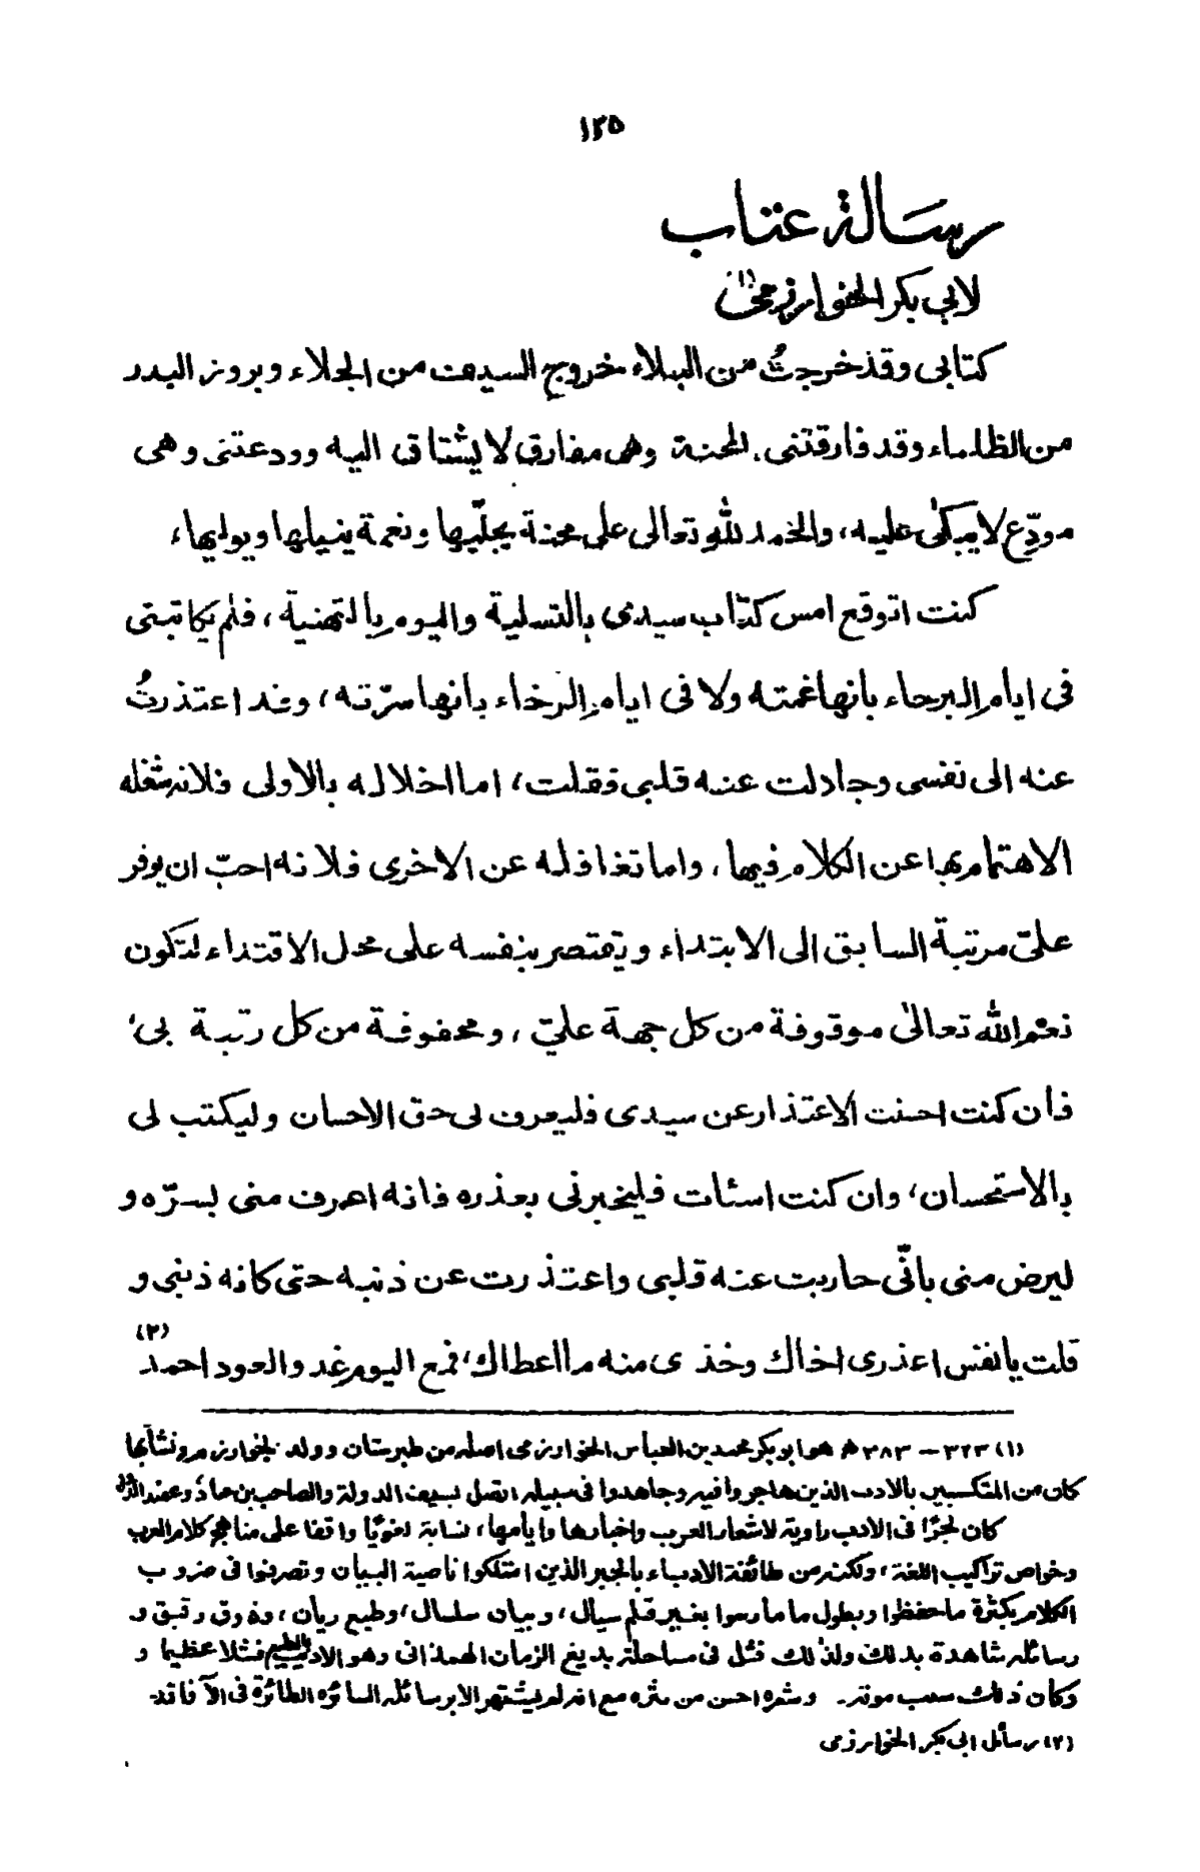 ١٢٥
رسالة عتاب
لابي بكر الخوارزمي (١)
كتابى وقد خرجتُ من البلاء خروج السيف من الجلاء وبروز البدر
من الظلماء وقد فارقتنى المحنة وهى مفارق لا يشتاق اليه وودعتنى وهى
مودّع لا يبكى عليه، والحمد لله تعالى على محنة يجلّيها ونعمة ينيلها ويوليها،
كنت اتوقع امس كتاب سيدى بالتسلية واليوم بالتهنية، فلم يكاتبنى
فى ايام البرحاء بانها غمته ولا فى ايام الرخاء بانها سرّته، وقد اعتذرتُ
عنه الى نفسى وجادلت عنه قلبى فقلت، اما اخلاله بالاولى فلانه شغله
الاهتمام بها عن الكلام فيها، واما تغافله عن الاخرى فلانه احبّ ان يوفر
علىّ مرتبة السابق الى الابتداء ويقتصر بنفسه على محل الاقتداء لتكون
نعم الله تعالىٰ موقوفة من كل جهة علىّ، ومحفوفة من كل رتبة بى،
فأن كنت احسنت الاعتذار عن سيدى فليعرف لى حق الاحسان وليكتب لى
بالاستحسان، وان كنت اسئات فليخبرنى بعذره فانه اعرف منى بسرّه و
ليرض منى بانّى حاربت عنه قلبى واعتذرت عن ذنبه حتى كانه ذنبى و
قلت يا نفس اعذرى اخاك وخذى منه ما اعطاك، فمع اليوم غد والعود احمد (٢)
(١) ٣٢٣ – ٣٨٣ هـ هو ابو بكر محمد بن العباس الخوارزمى اصله من طبرستان وولد بخوارزم ونشأ بها
كان من المتكسبين بالادب الذين هاجروا فيه وجاهدوا فى سبيله اتصل بسيف الدولة والصاحب بن عباد وعضد الدولة
كان لجرًا فى الادب راوية لاشعار العرب واخبارها وايامها، نسابة لغويًا واقفا على مناهج كلام العرب
وخواص تراكيب اللغة، ولكنه من طائفة الادباء بالجبر الذين امتلكوا ناصية البيان وتصرفوا فى ضروب
الكلام بكثرة ما حفظوا وبطول ما مارسوا بغير قلم سيال، وبيان سلسال، وطبع ريان، وذوق رقيق و
رسائله شاهدة بذلك ولذلك فشل فى مساجلته بديع الزمان الهمذانى وهو الاديب بالطبع فشلا عظيما و
وكان ذلك سبب موته. وشعره احسن من نثره مع انه لم يشتهر الا برسائله السائره الطائرة فى الآفاق
(٢) رسائل ابى بكر الخوارزمى